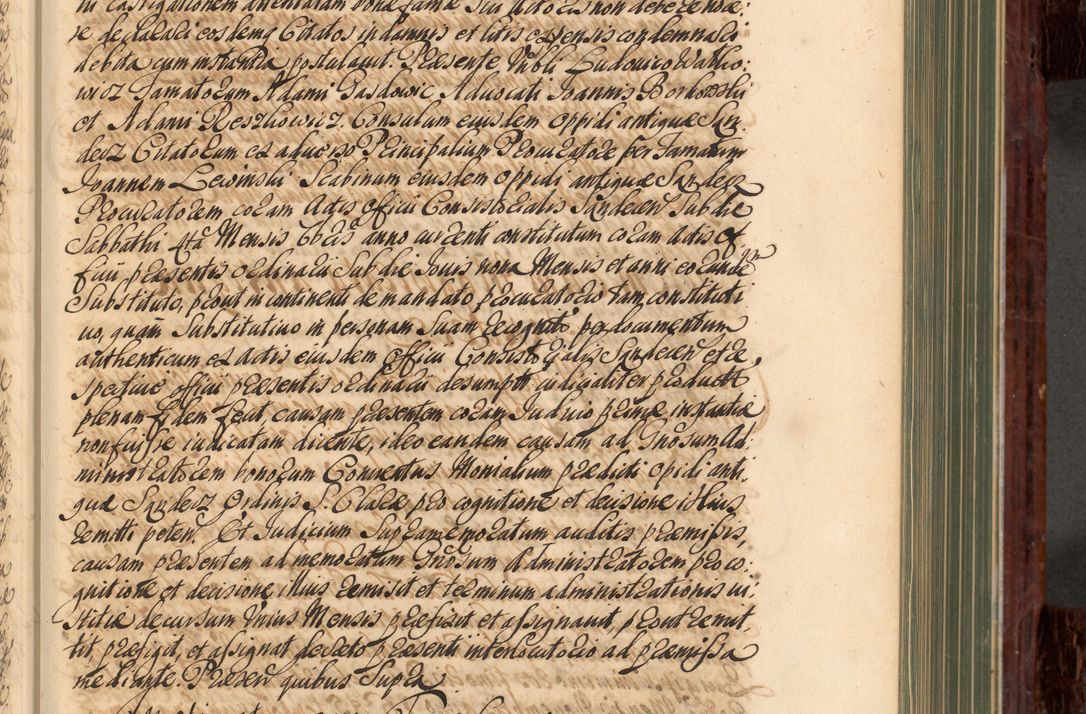 in castigationem attentatam bona fama
re declarari eosdemq Citatos in damnis et litis expensis condemnari
debita cum instantia postulavit. Præsente Nobli Ludovico Watho:
wicz Famatorum Adami Gasdowic Advocati Joannis Borkowski
et Adami Reszkowicz Consulum eiusdem oppidi antiquæ San,
decz Citatorum ex adverso Principalium Procuratore per Famatum
Joannem Lewinski Scabinum eiusdem oppidi antiquæ Sandecz
Procuratorem coram Actis officii Consistorialis Sandecen̄ Sub die
Sabbathi 4ta Mensis 8bris anno currenti constitutum coram Actis of,
ficii præsentis ordinarii Sub die Jovis nona Mensis et anni eorundem
Substituto, prout in continenti de mandato procuratorio tam constituti
vo, quam Substitutivo in personam Suam recognito, per documentum
authenticum ex Actis eiusdem Officii Consistorialis Sandecen̄ et re,
spective officii præsentis ordinarii desumpta judicialiter producta
plenam fidem fecit causam præsentem coram Judicio primæ instantiæ
non fuisse iudicatam dicente, ideo eandem causam ad Gnosum Ad:
ministratorem bonorum Conventus Monialium prædicti opidi anti,
quæ Sandecz Ordinis S. Claræ pro cognitione et decisione illius
remitti peten. Et Judicium Supramemoratum auditis præmissis,
causam præsentem ad memoratum Gnosum Administratorem pro co:
gnitione et decisione illius remisit et terminum administrationis iu,
stitiæ decursum Unius Mensis præfixit et assignavit, prout remit,
tit præfigit, et assignat decreto præsenti interlocutorio ad præmissa
mediante. Præsen̄ quibus Supra